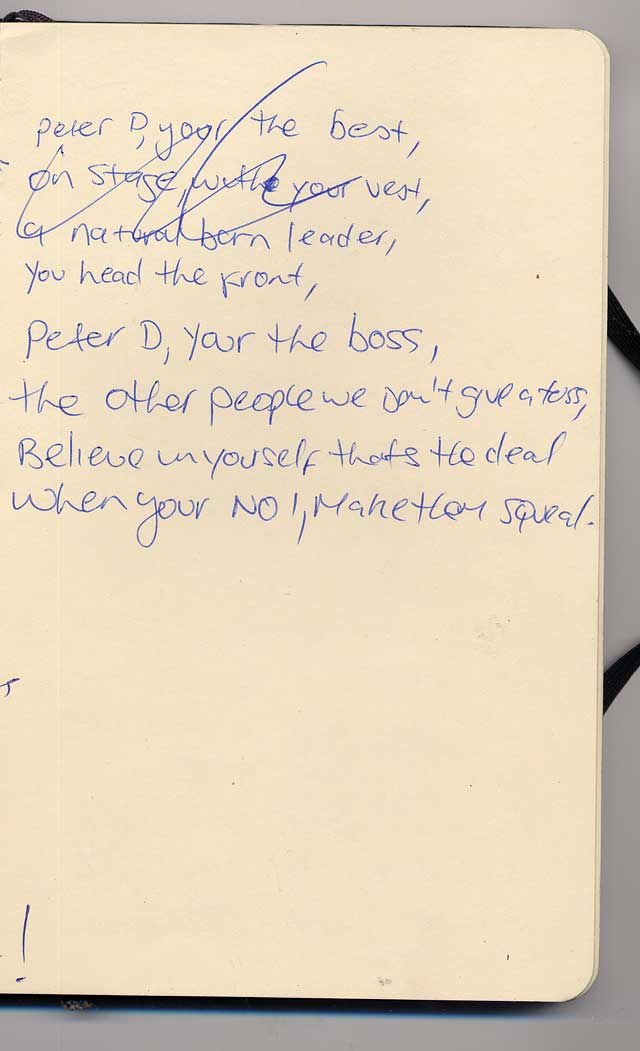 Peter D, your the best,
on stage, with your vest,
a natural born leader,
you head the front,
Peter D, your the boss,
the other people we Don't give a toss,
Believe in yourself thats the deal
When your NO 1, Make them squeal.
!